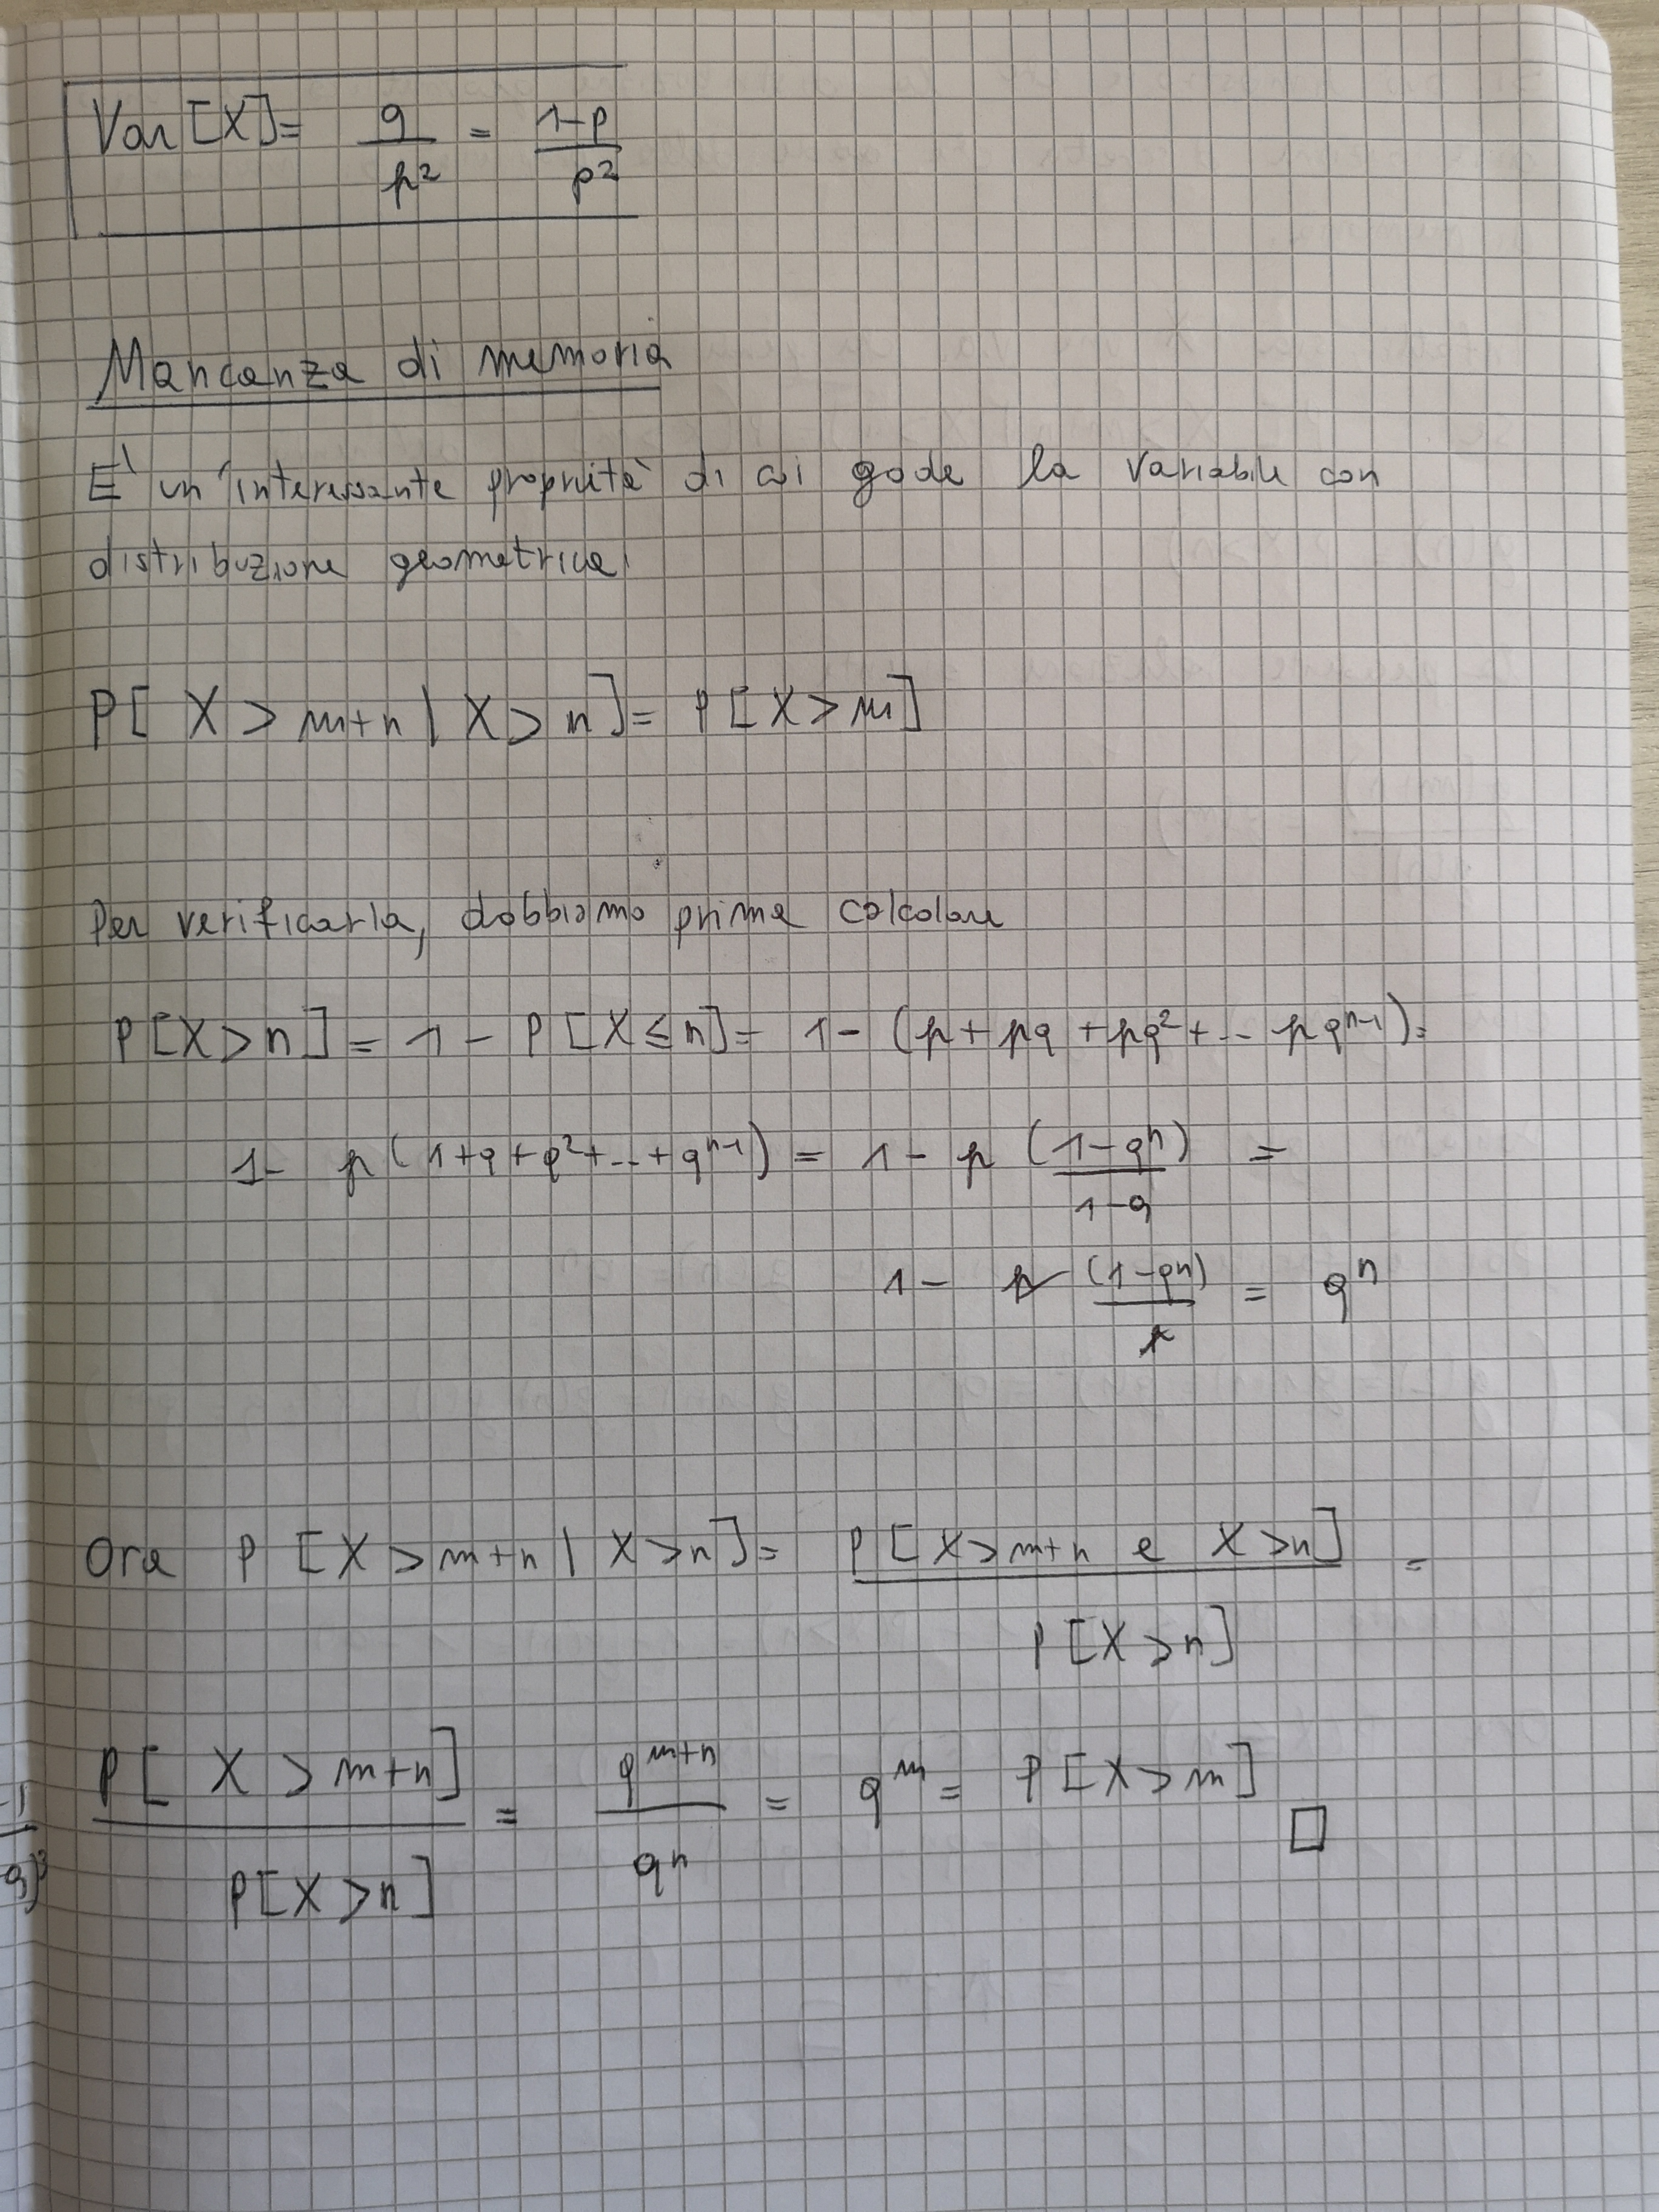 Var[X] = q/p² = 1-p/p²
Mancanza di memoria
E' un'interessante proprietà di cui gode la variabile con
distribuzione geometrica.
P[X > m+n | X > n] = P[X > m]
Per verificarla, dobbiamo prima calcolare
P[X > n] = 1 - P[X ≤ n] = 1 - (p + pq + pq² + ... pqⁿ⁻¹) =
1 - p(1+q+q²+...+qⁿ⁻¹) = 1 - p (1-qⁿ)/1-q =
1 - p (1-qⁿ)/p = qⁿ
Ora P[X > m+n | X > n] = P[X > m+n e X > n]/P[X > n] =
P[X > m+n]/P[X > n] = qᵐ⁺ⁿ/qⁿ = qᵐ = P[X > m] □